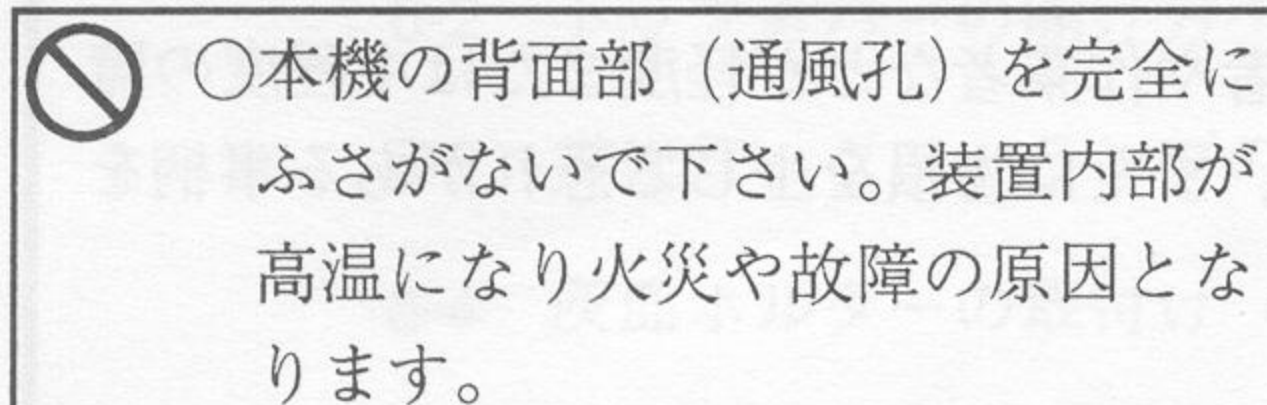 ○本機の背面部（通風孔）を完全に
ふさがないで下さい。装置内部が
高温になり火災や故障の原因とな
ります。